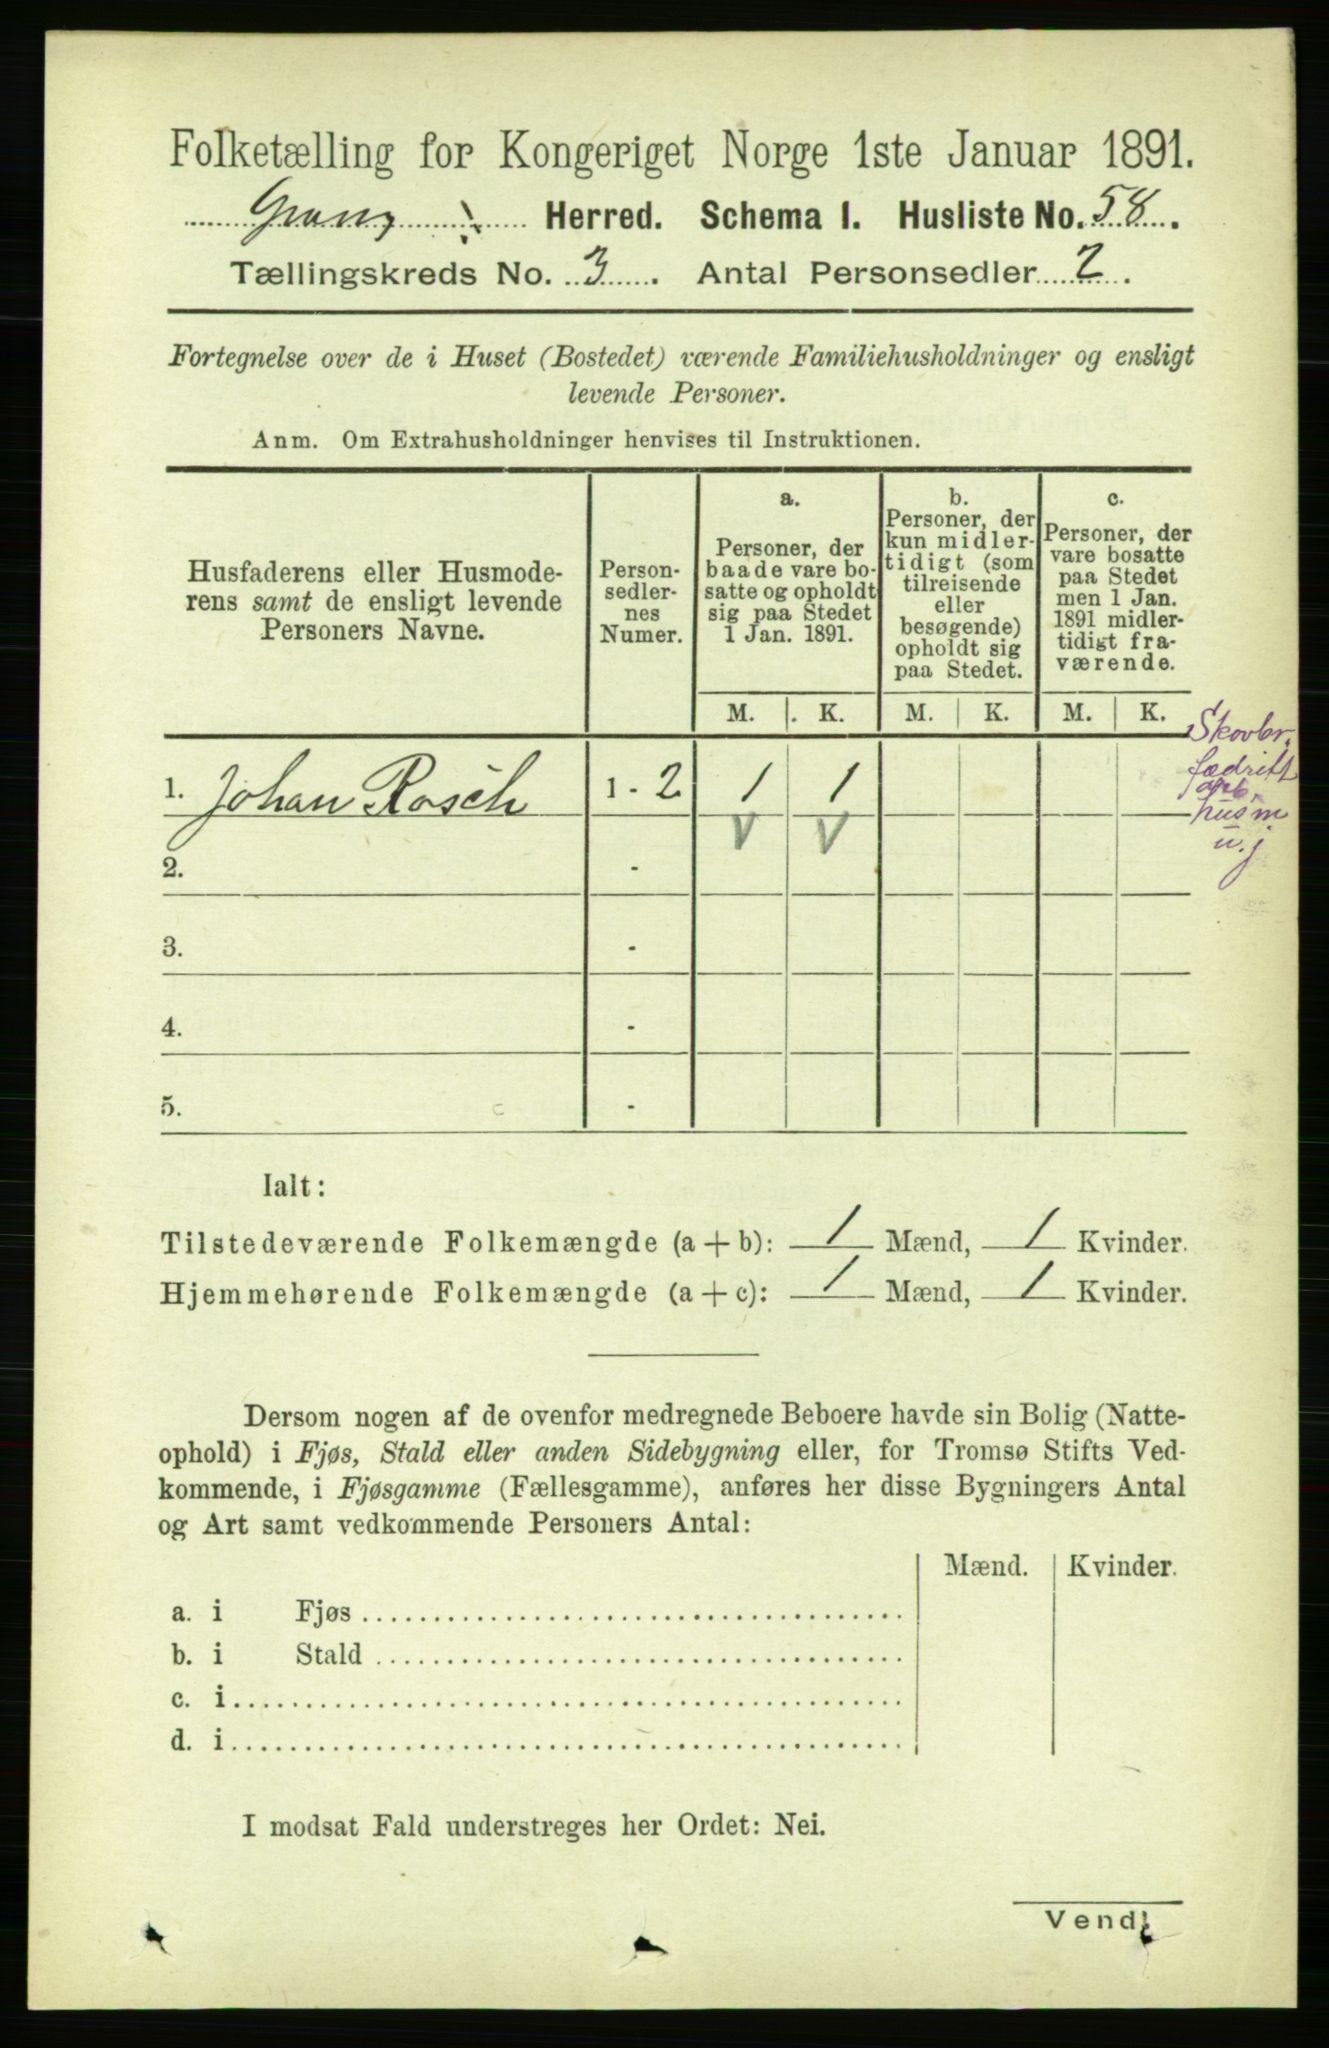 Folketælling for Kongeriget Norge 1ste Januar 1891.
Herred. Schema I. Husliste No. 58.
Tællingskreds No. 3. Antal Personsedler 2.
Fortegnelse over de i Huset (Bostedet) værende Familiehusholdninger og ensligt
levende Personer.
Anm. Om Extrahusholdninger henvises til Instruktionen.
Husfaderens eller Husmode-
rens samt de ensligt levende
Personers Navne.
Person-
sedler-
nes
Numer.
a.
Personer, der
baade vare bo-
satte og opholdt
sig paa Stedet
1 Jan. 1891.
b.
Personer, der
kun midler-
tidigt (som
tilreisende
eller
besøgende)
opholdt sig
paa Stedet.
c.
Personer, der
vare bosatte
paa Stedet
men 1 Jan.
1891 midler-
tidigt fra-
værende.
M. K. M. K. M. K.
1. Johan Rasch 1 - 2 1 1
V V
Skovbr.
fædrift
arb.
husm
u. j
2. -
3. -
4. -
5. -
Ialt:
Tilstedeværende Folkemængde (a + b): 1 Mænd, 1 Kvinder.
Hjemmehørende Folkemængde (a + c): 1 Mænd, 1 Kvinder.
Dersom nogen af de ovenfor medregnede Beboere havde sin Bolig (Natte-
ophold) i Fjøs, Stald eller anden Sidebygning eller, for Tromsø Stifts Ved-
kommende, i Fjøsgamme (Fællesgamme), anføres her disse Bygningers Antal
og Art samt vedkommende Personers Antal:
Mænd. Kvinder.
a. i Fjøs
b. i Stald
c. i
d. i
I modsat Fald understreges her Ordet: Nei.
Vend!